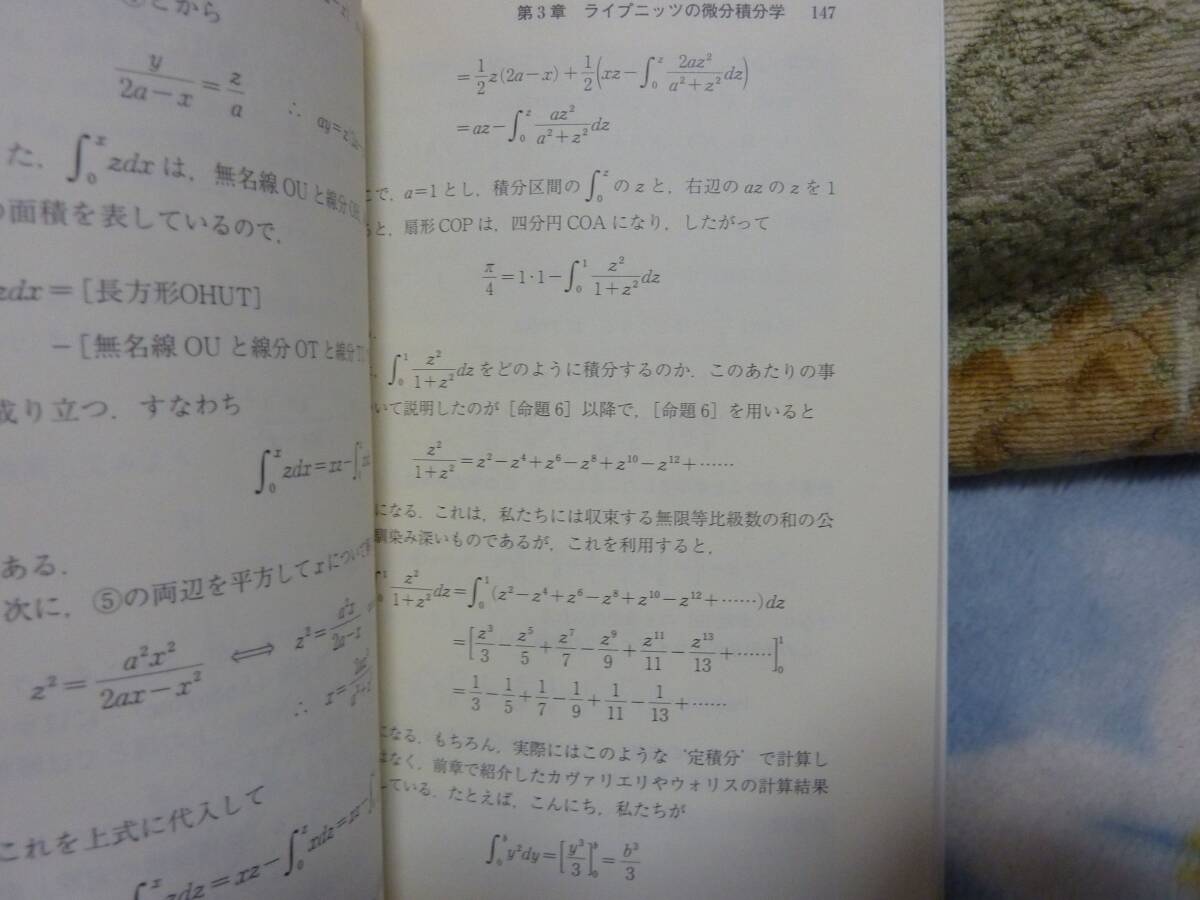 とから
y/(2a−x) = z/a ∴ ay=z(2a−
た．∫₀ˣ zdx は，無名線OUと線分
面積を表しているので，
zdx = [長方形OHUT]
−[無名線OUと線分OTと線分
成り立つ．すなわち
∫₀ˣ zdx=xz−∫
ある．
次に，⑤の両辺を平方してxについて
z² = a²x²/(2ax−x²) ⟺ z² = a²x/(2a−x)
∴ x=
これを上式に代入して
zdx = xz−∫₀ᶻ xdz = xz−
第3章 ライプニッツの微分積分学 147
=1/2 z(2a−x)+1/2(xz−∫₀ᶻ 2az²/(a²+z²) dz)
=az−∫₀ᶻ az²/(a²+z²) dz
で，a=1とし，積分区間の∫₀ᶻのzと，右辺のazのzを1
と，扇形COPは，四分円COAになり，したがって
π/4=1·1−∫₀¹ z²/(1+z²) dz
∫₀¹ z²/(1+z²) dzをどのように積分するのか．このあたりの事
いて説明したのが［命題6］以降で，［命題6］を用いると
z²/(1+z²)=z²−z⁴+z⁶−z⁸+z¹⁰−z¹²+……
になる．これは，私たちには収束する無限等比級数の和の公
馴染み深いものであるが，これを利用すると，
∫₀¹ z²/(1+z²) dz=∫₀¹ (z²−z⁴+z⁶−z⁸+z¹⁰−z¹²+……)dz
=[z³/3−z⁵/5+z⁷/7−z⁹/9+z¹¹/11−z¹³/13+……]₀¹
=1/3−1/5+1/7−1/9+1/11−1/13+……
になる．もちろん，実際にはこのような‘定積分’で計算し
はなく，前章で紹介したカヴァリエリやウォリスの計算結果
ている．たとえば，こんにち，私たちが
∫₀ᵇ y²dy=[y³/3]₀ᵇ=b³/3